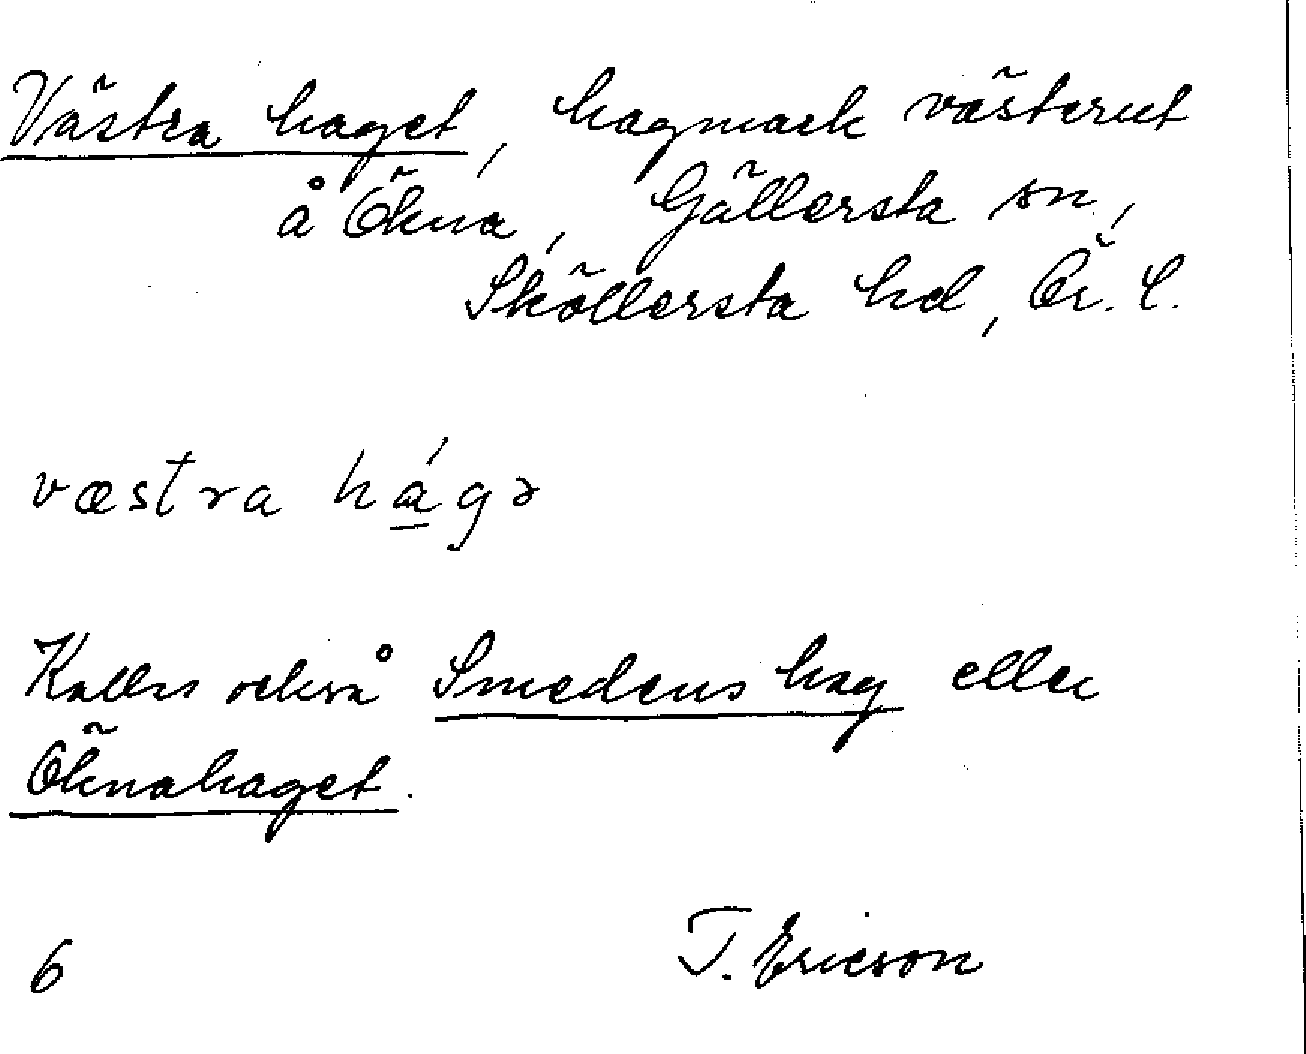 Västra haget, hagmark västerut
å Ökna, Gällersta sn,
Sköllersta hd, Ör. l.
væstra hágə
Kallas också Smedens hag eller
Öknahaget.
6 T. Ericson